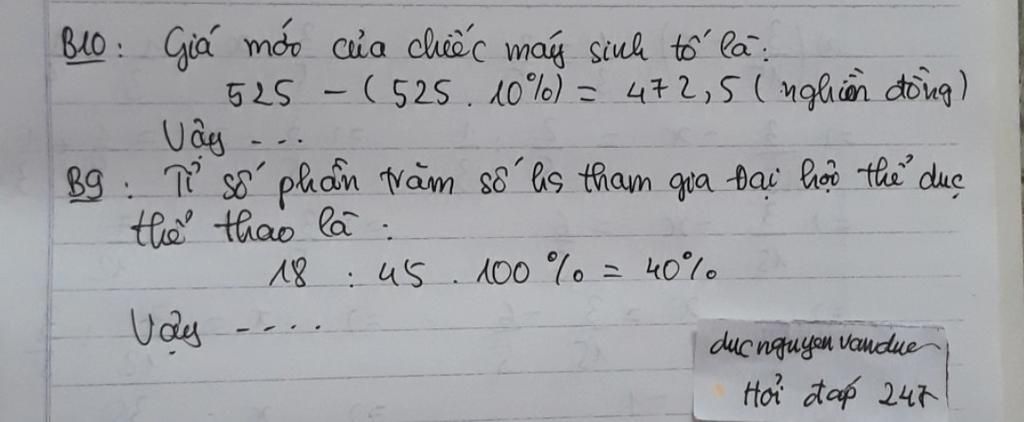 B10: Giá mới của chiếc máy sinh tố là:
525 - (525 . 10%) = 472,5 (nghìn đồng)
Vậy ....
B9: Tỉ số phần trăm số hs tham gia Đại hội thể dục
thể thao là:
18 : 45 . 100% = 40%
Vậy ----.
ducnguyenvanduc
Hỏi đáp 247